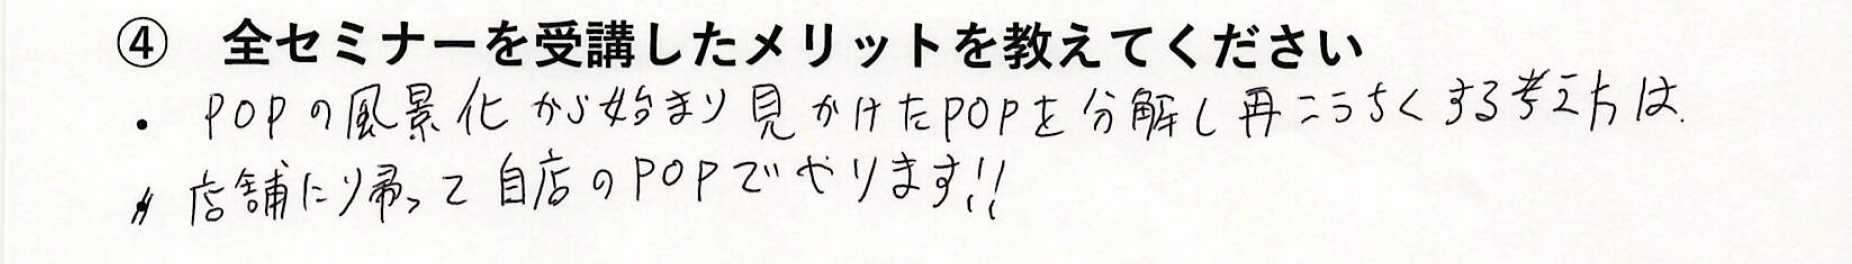 ④ 全セミナーを受講したメリットを教えてください
・ POPの風景化から始まり見かけたPOPを分解し再こうちくする考え方は
店舗に帰って自店のPOPでやります!!